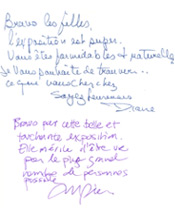 Bravo les filles,
l'exposition est super.
Vous êtes formidables et naturelles
Je vous souhaite de trouver...
ce que vous cherchez
Soyez heureuses
Diane
Bravo pour cette belle et
touchante exposition.
Elle mérite d'être vue
par le plus grand
nombre de personnes
possible